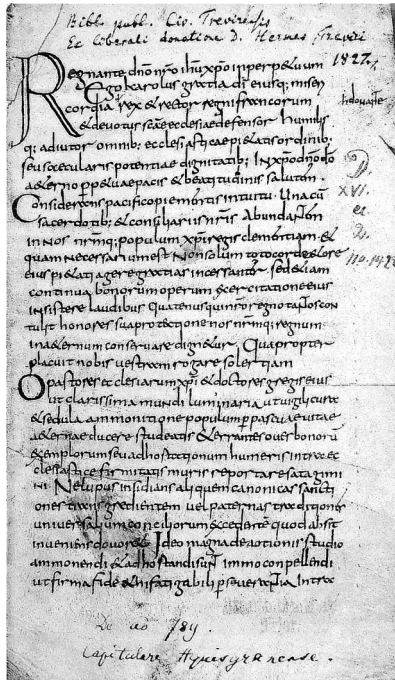 Bibl. publ. Civ. Trevirensis
Ex liberali donatione D. Hermes Treviri
1827.
Regnante dno nro ihu xpo inperpetuum
Ego Karolus gratia di eiusq; miseri
cordia rex et rector regni francorum
et deuotus scae ecclesiae defensor humilis
q; adiutor omnib; ecclesiasticae pietatis ordinib;
seu saecularis potentiae dignitatib; In xpo dno do
aeterno ppetuae pacis et beatitudinis salutem.
Considerans pacifico piae mentis intuitu. Unacu
sacerdotib; et consiliariis nris Abundantem
in nos nrmq; populum xpi regis clementiam. et
quam necessarium est Non solum toto corde et ore
eius pietati agere gratias incessanter sed etiam
continua bonorum operum exercitatione eius
insistere laudibus Quatenus qui nro regno tantos con
tulit honores sua protectione nos nrmq; regnum
in aeternum conseruare dignetur; Quapropter
placuit nobis uestram rogare solertiam
O pastores ecclesiarum xpi et doctores gregis eius
ut clarissima mundi luminaria ut uigili cura
et sedula ammonitione populum per pascua uitae
aeternae ducere studeatis Et errantes oues bonoru
exemplorum seu adhortationum humeris intra ec
clesiasticae firmitatis muris reportare satagimi
ni Ne lupus insidians aliquem canonicas sancti
ones transgredientem uel paternas traditiones
uniuersalium conciliorum excedente quod absit
inueniens deuoret Ideo magna deuotionis studio
ammonendi et adhortandi sunt immo conpellendi
ut firma fide et infatigabili perseuerantia Intra
De ao 789.
Capitulare Aquisgranense.